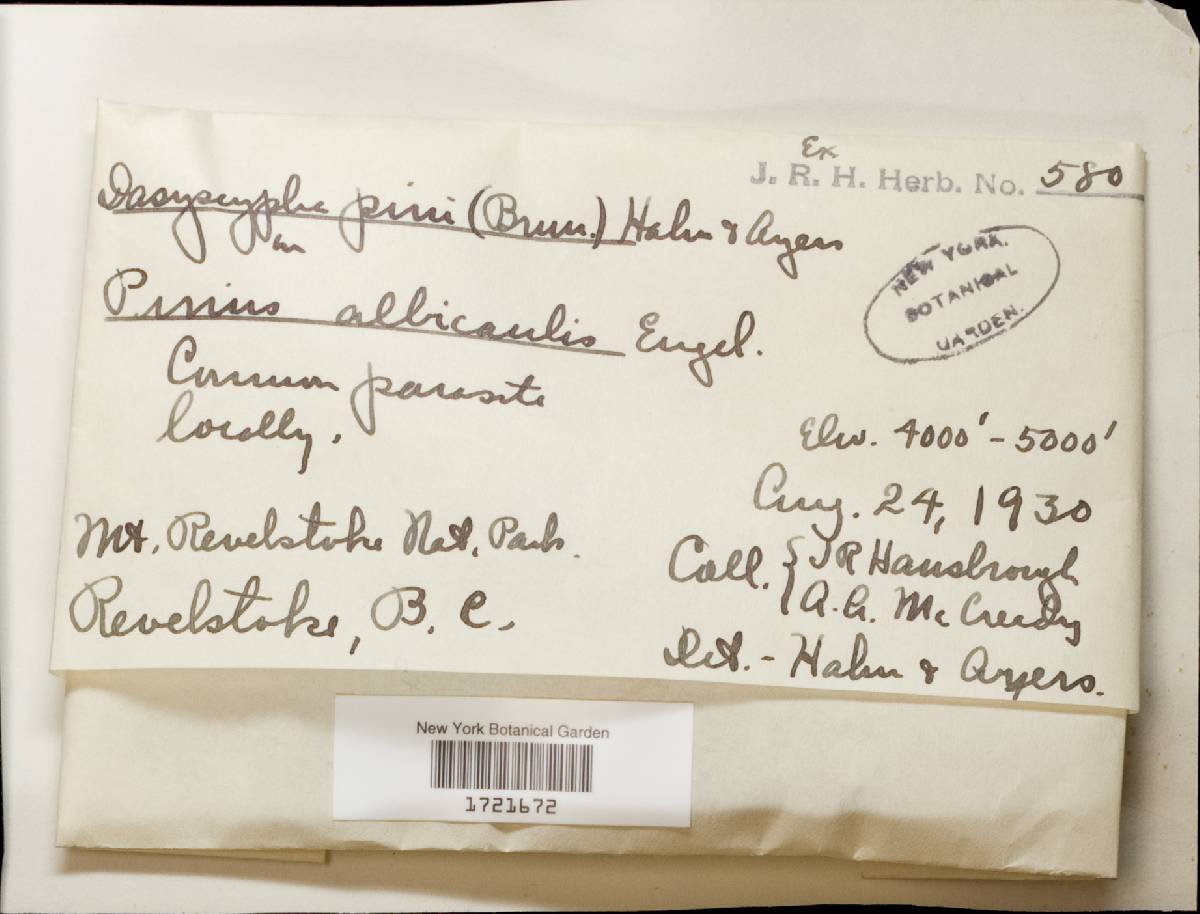 Ex
J. R. H. Herb. No. 580
Dasyscypha pini (Brun.) Hahn & Ayers
on
NEW YORK
BOTANICAL
GARDEN.
Pinus albicaulis Engel.
Common parasite
locally.
Elev. 4000' - 5000'
Aug. 24, 1930
Mt. Revelstoke Nat. Park.
Coll. { J R Hansbrough
A. G. McCready
Revelstoke, B. C.
Det. - Hahn & Ayers.
New York Botanical Garden
1721672